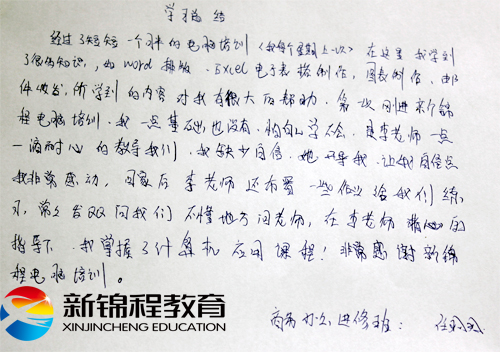 学习总结
经过了短短一个多月的电脑培训(我每个星期上一次)在这里我学到
了很多知识,如word排版、Excel电子表格制作、图表制作、邮
件收发,所学到的内容对我有很大的帮助。第一次刚进来新锦
程电脑培训,我一点基础也没有,怕自己学不会,是李老师一点
一滴耐心的教导我们,我缺少自信,她开导我,让我自信点
我非常感动,回家后李老师还布置一些作业给我们练
习,常久在QQ问我们不懂地方问老师,在李老师精心的
指导下,我掌握了计算机应用课程!非常感谢新锦
程电脑培训。
商务办公进修班:
新锦程教育
XINJINCHENG EDUCATION